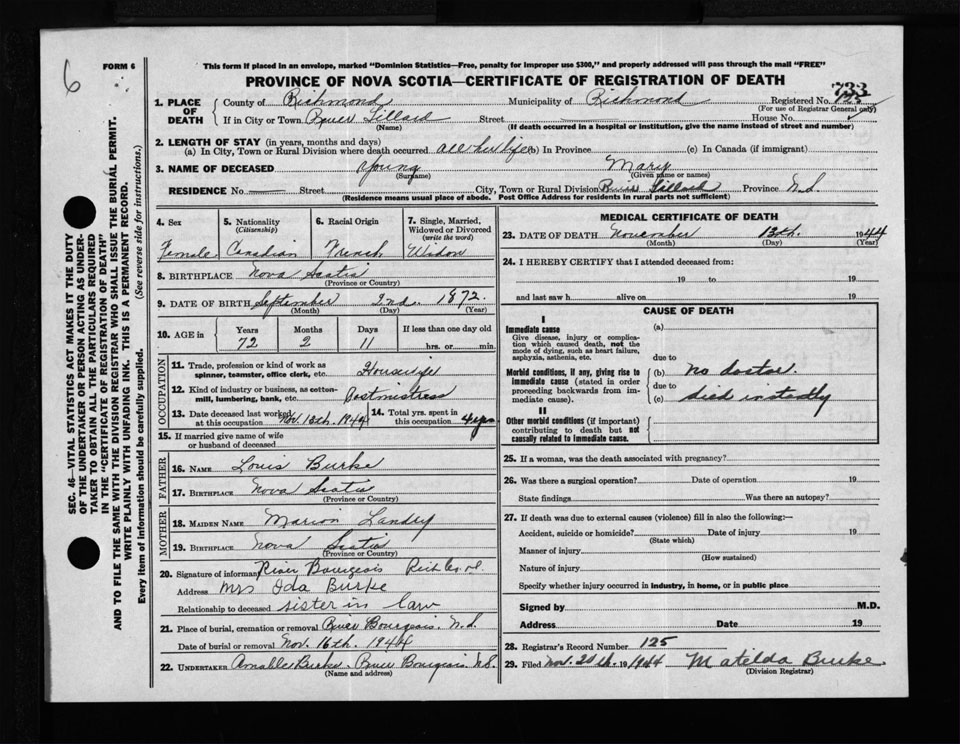 6
FORM 6
This form if placed in an envelope, marked "Dominion Statistics—Free, penalty for improper use $300," and properly addressed will pass through the mail "FREE"
PROVINCE OF NOVA SCOTIA—CERTIFICATE OF REGISTRATION OF DEATH
733
1. PLACE OF DEATH
County of Richmond Municipality of Richmond Registered No. 125
(For use of Registrar General only)
If in City or Town River Tillard Street House No.
(Name) (If death occurred in a hospital or institution, give the name instead of street and number)
2. LENGTH OF STAY (in years, months and days)
(a) In City, Town or Rural Division where death occurred all her life (b) In Province (c) In Canada (if immigrant)
3. NAME OF DECEASED Young Mary
(Surname) (Given name or names)
RESIDENCE No. Street City, Town or Rural Division River Tillard Province N.S.
(Residence means usual place of abode. Post Office Address for residents in rural parts not sufficient)
4. Sex 5. Nationality (Citizenship) 6. Racial Origin 7. Single, Married, Widowed or Divorced (write the word)
Female Canadian French Widow
8. BIRTHPLACE Nova Scotia
(Province or Country)
9. DATE OF BIRTH September 2nd. 1872.
(Month) (Day) (Year)
10. AGE in Years Months Days If less than one day old
72 2 11 hrs. or min.
OCCUPATION
11. Trade, profession or kind of work as spinner, teamster, office clerk, etc. Housewife
12. Kind of industry or business, as cotton-mill, lumbering, bank, etc. Postmistress
13. Date deceased last worked at this occupation Nov. 13th. 1944 14. Total yrs. spent in this occupation 4 yrs
15. If married give name of wife or husband of deceased
FATHER
16. NAME Louis Burke
17. BIRTHPLACE Nova Scotia
(Province or Country)
MOTHER
18. MAIDEN NAME Marion Landry
19. BIRTHPLACE Nova Scotia
(Province or Country)
20. Signature of informant River Bourgeois Rich Co.
Address Mrs Ida Burke
Relationship to deceased sister in law
21. Place of burial, cremation or removal River Bourgeois. N.S.
Date of burial or removal Nov. 16th. 1944
22. UNDERTAKER Amable Burke. River Bourgeois. N.S.
(Name and address)
MEDICAL CERTIFICATE OF DEATH
23. DATE OF DEATH November 13th. 1944
(Month) (Day) (Year)
24. I HEREBY CERTIFY that I attended deceased from:
19 to 19
and last saw h alive on 19
CAUSE OF DEATH
I
Immediate cause
Give disease, injury or complication which caused death, not the mode of dying, such as heart failure, asphyxia, asthenia, etc.
(a)
due to
Morbid conditions, if any, giving rise to immediate cause (stated in order proceeding backwards from immediate cause).
(b) no doctor
due to
(c) died instedly
II
Other morbid conditions (if important) contributing to death but not causally related to immediate cause.
25. If a woman, was the death associated with pregnancy?
26. Was there a surgical operation? Date of operation 19
State findings Was there an autopsy?
27. If death was due to external causes (violence) fill in also the following:—
Accident, suicide or homicide? Date of injury 19
(State which)
Manner of injury
(How sustained)
Nature of injury
Specify whether injury occurred in industry, in home, or in public place
Signed by M.D.
Address Date 19
28. Registrar's Record Number 125
29. Filed Nov. 20th. 1944 Matelda Burke
(Division Registrar)
SEC. 46—VITAL STATISTICS ACT MAKES IT THE DUTY
OF THE UNDERTAKER OR PERSON ACTING AS UNDER-
TAKER TO OBTAIN ALL THE PARTICULARS REQUIRED
IN THE "CERTIFICATE OF REGISTRATION OF DEATH"
AND TO FILE THE SAME WITH THE DIVISION REGISTRAR WHO SHALL ISSUE THE BURIAL PERMIT.
WRITE PLAINLY WITH UNFADING INK. THIS IS A PERMANENT RECORD.
Every item of information should be carefully supplied. (See reverse side for instructions.)